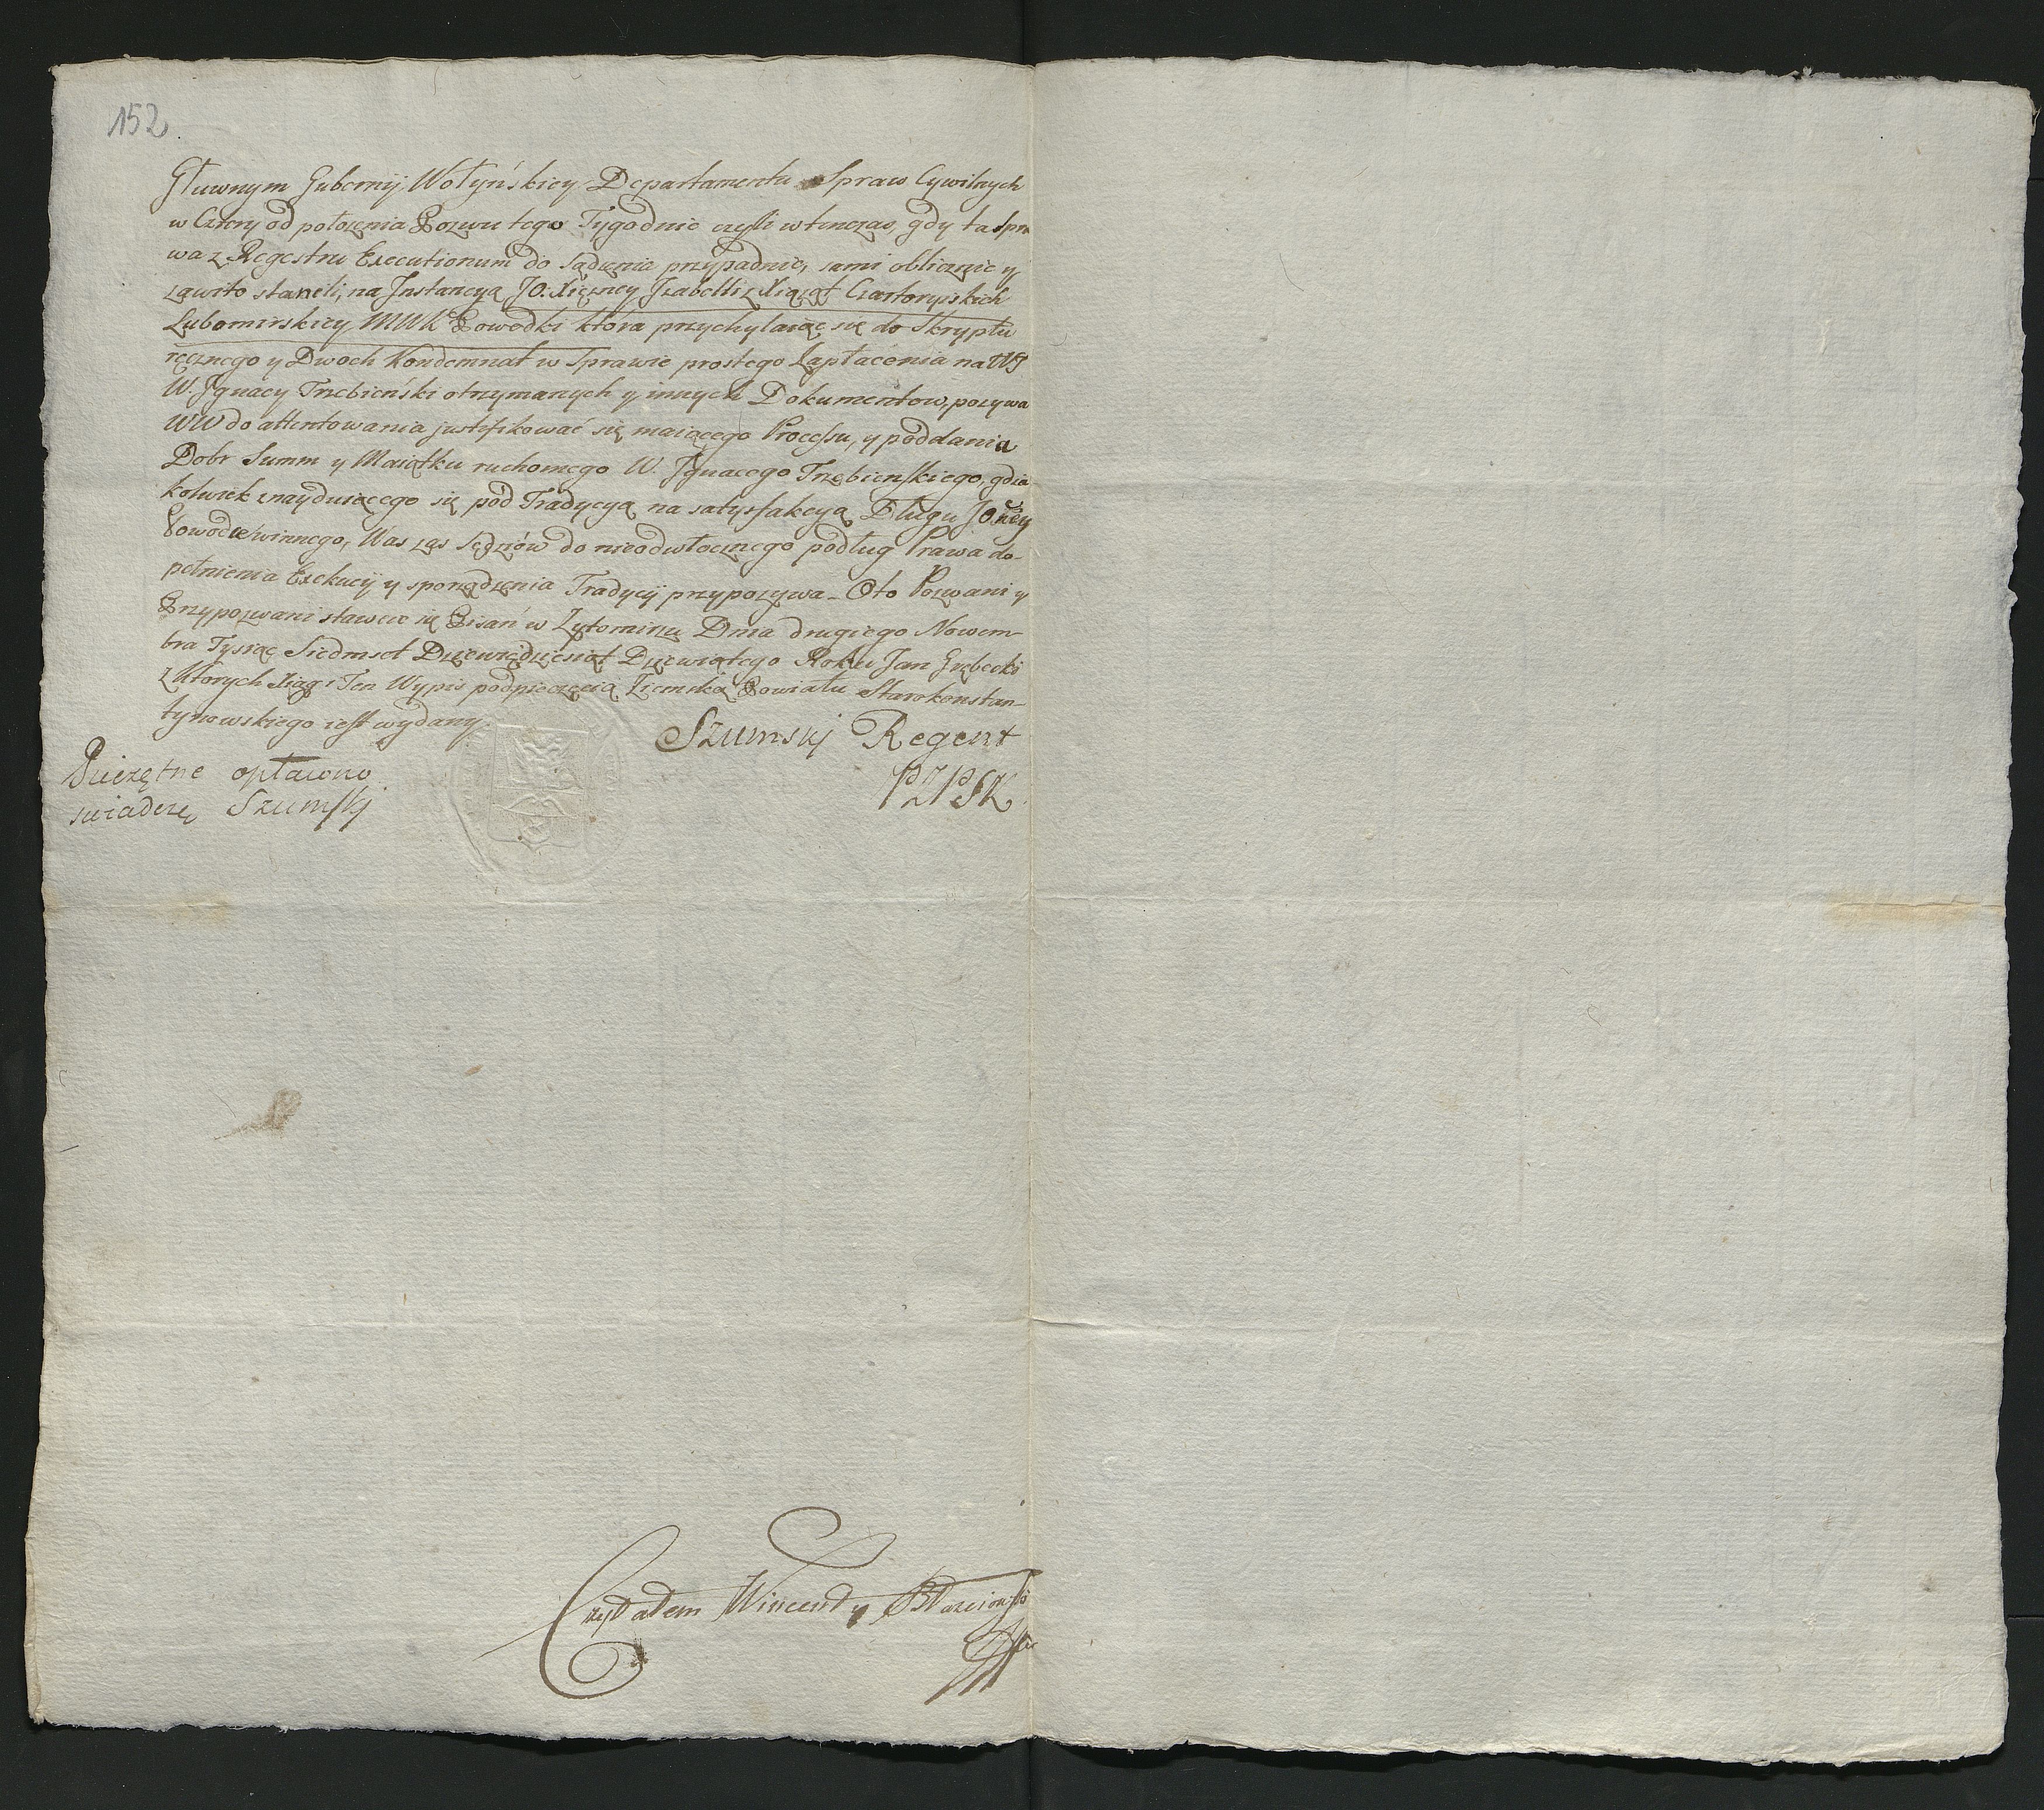 152
Głuwnym Gubernij Wołyńskiey Departamentu Spraw Cywilnych
w Cztery od położenia Pozwu tego Tygodnie czyli wtenczas, gdy ta Spra
wa z Regestru Executionum do sądzenia przypadnie, sami oblicznie y
zawito staneli, na Instancyą JO. Xiężney Izabelli z Xiążąt Czartoryskich
Lubomirskiey MWK Powodki która przychylaiąc się do Skryptu
ręcznego y Dwoch Kondemnat w Sprawie prostego Zapłacenia na
W. Ignacy Trzebieński otrzymanych y innych Dokumentow, pozywa
WW do attentowania justifikować się maiącego Processu, y poddania
Dobr Summ y Maiątku ruchomego W. Ignacego Trzebienskiego, gdzie
kolwiek znayduiącego się pod Tradycyą na satysfakcyą Długu JO.
Powodce winnego, Was zaś Sędziów do nieodwłocznego podług Prawa do-
pełnienia Exekucij y sporządzenia Tradycij przypozywa - Oto Pozwani y
Przypozwani stawcie się Pisań w Żytomirzu Dnia drugiego Nowem-
bra Tysiąc Siedmset Dziewiędziesiąt Dziewiątego Roku Jan Grębecki
z których Xiąg i Ten Wypis pod pieczęcią Ziemską Powiatu Starokonstan-
tynowskiego iest wydany.
Szumskj Regent
PZPSK
Pieczętne opłacono
swiadczę Szumskj
Czytałem Wincenty